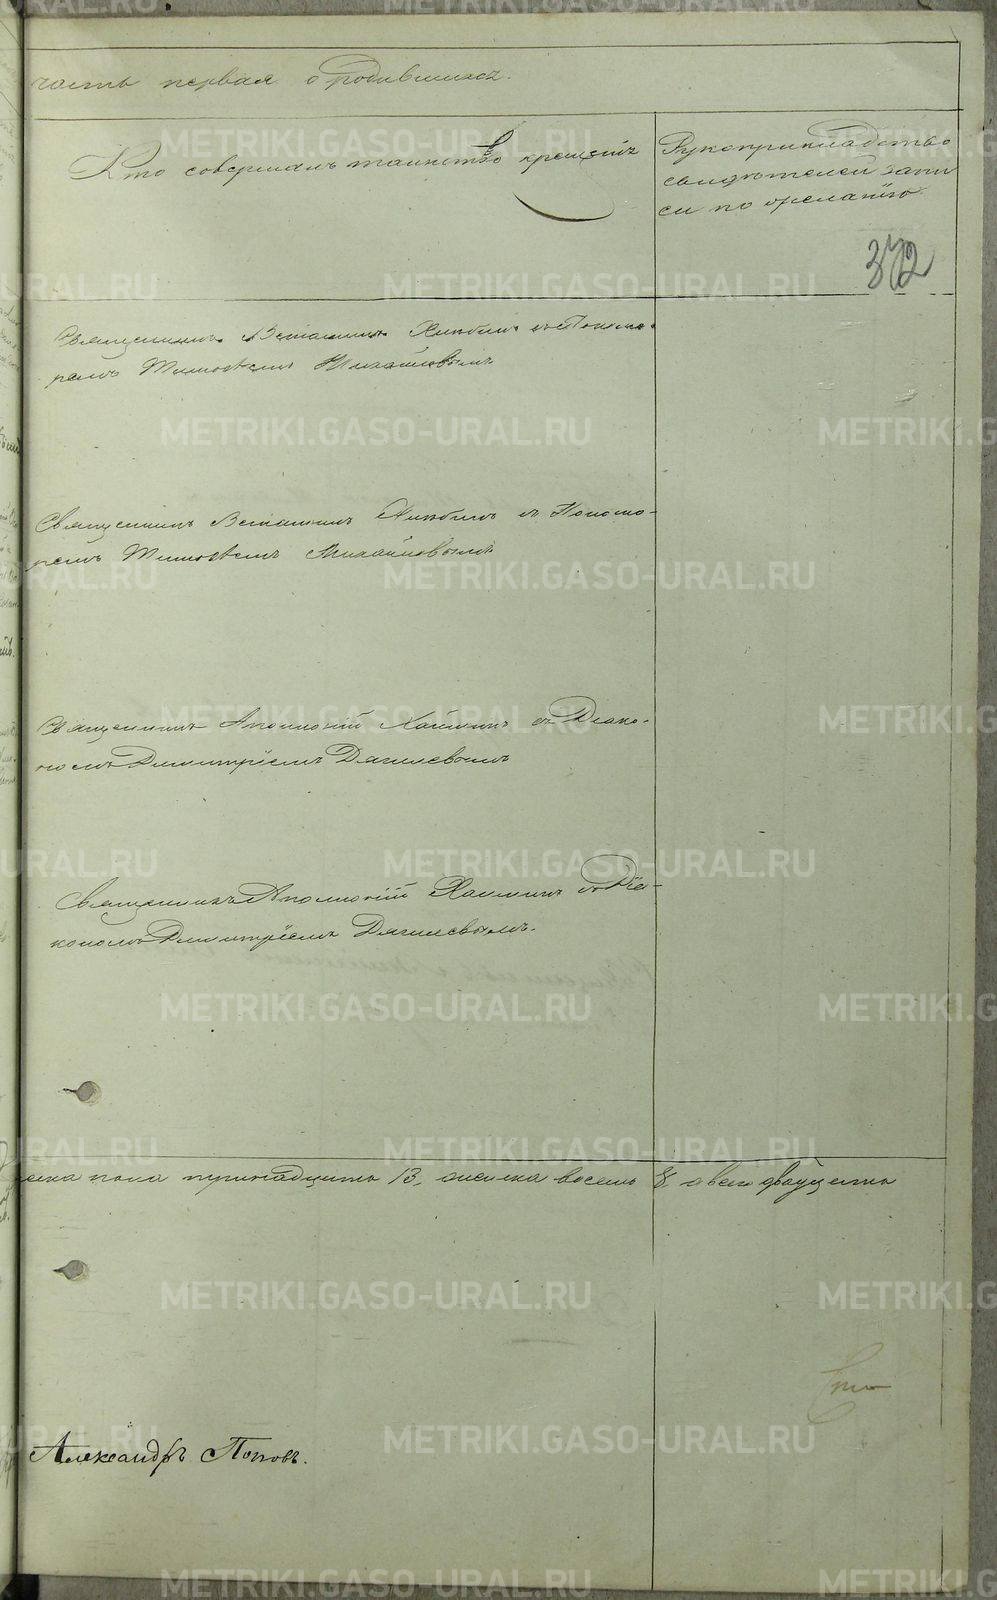 часть первая о родившихся.
Кто совершалъ таинство крещенія
Рукоприкладство
свидѣтелей запи
си по желанію.
372
Священникъ Веніаминъ съ Понома-
ремъ Тимоѳеемъ Михайловымъ
Священникъ Веніаминъ съ Понома-
ремъ Тимоѳеемъ Михайловымъ
Священникъ Аполлоній съ Діако-
номъ Димитріемъ Дягилевымъ
Священникъ Аполлоній съ Діа-
кономъ Димитріемъ Дягилевымъ.
пола тринадцать 13, женска восемь 8, а всего двадцать
Александръ Поповъ.
METRIKI.GASO-URAL.RU